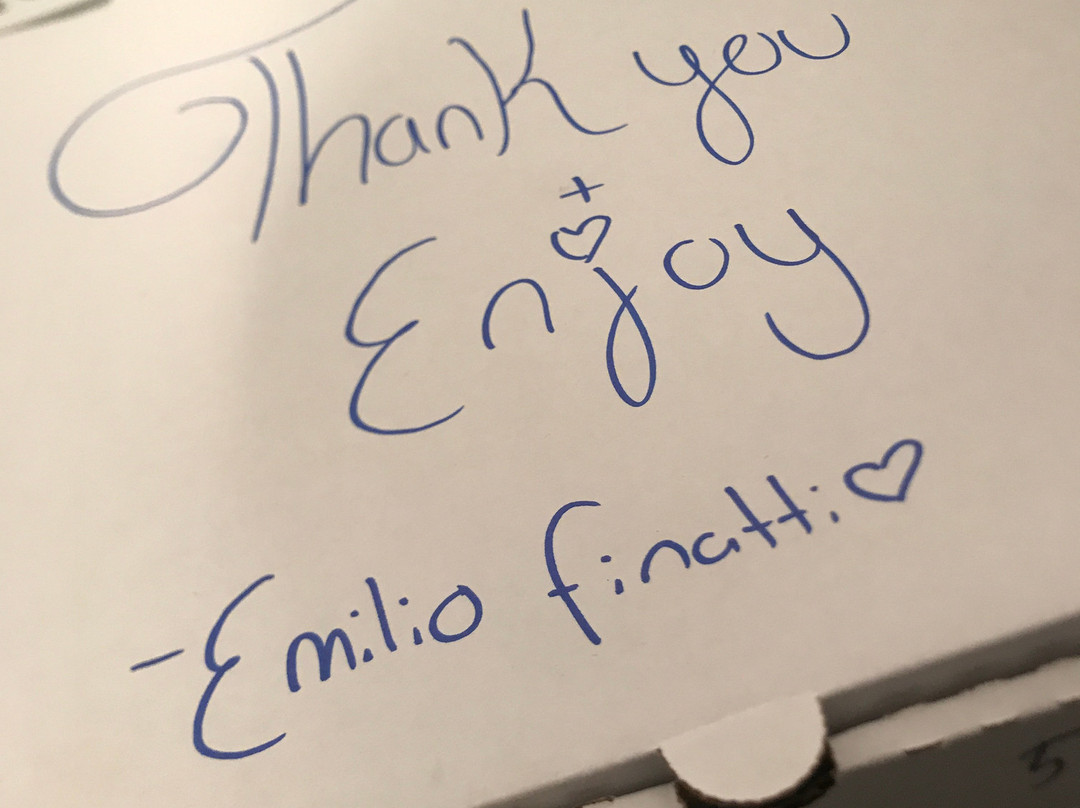 Thank you
+
Enjoy
-Emilio finatti ♡
5